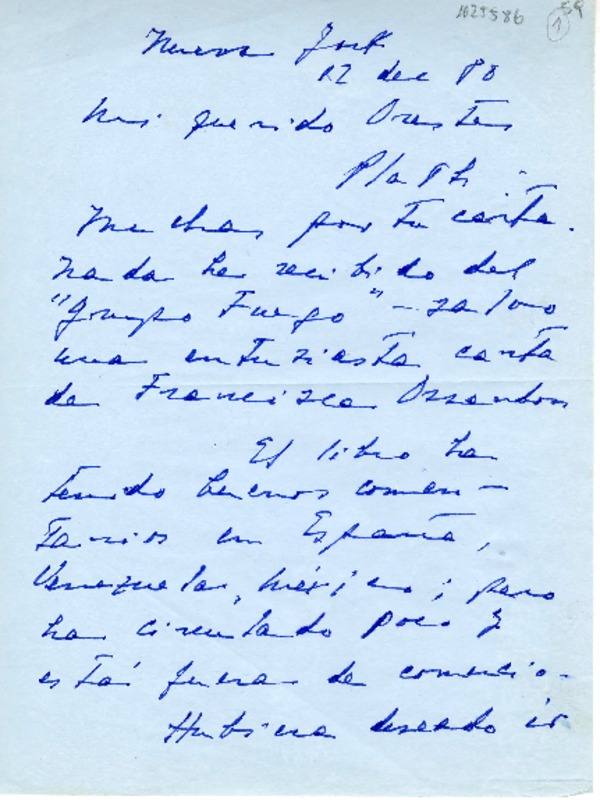 1025586 59
1
Nueva York
12 dec 80
Mi querido Orestes
Plath :
Muchas por tu carta.
Nada he recibido del
"Grupo Fuego" – salvo
una entusiasta carta
de Francisca Ossandon
El libro ha
tenido buenos comen–
tarios en España,
Venezuela, México; pero
ha circulado poco y
está fuera de comercio.
Hubiera deseado ir